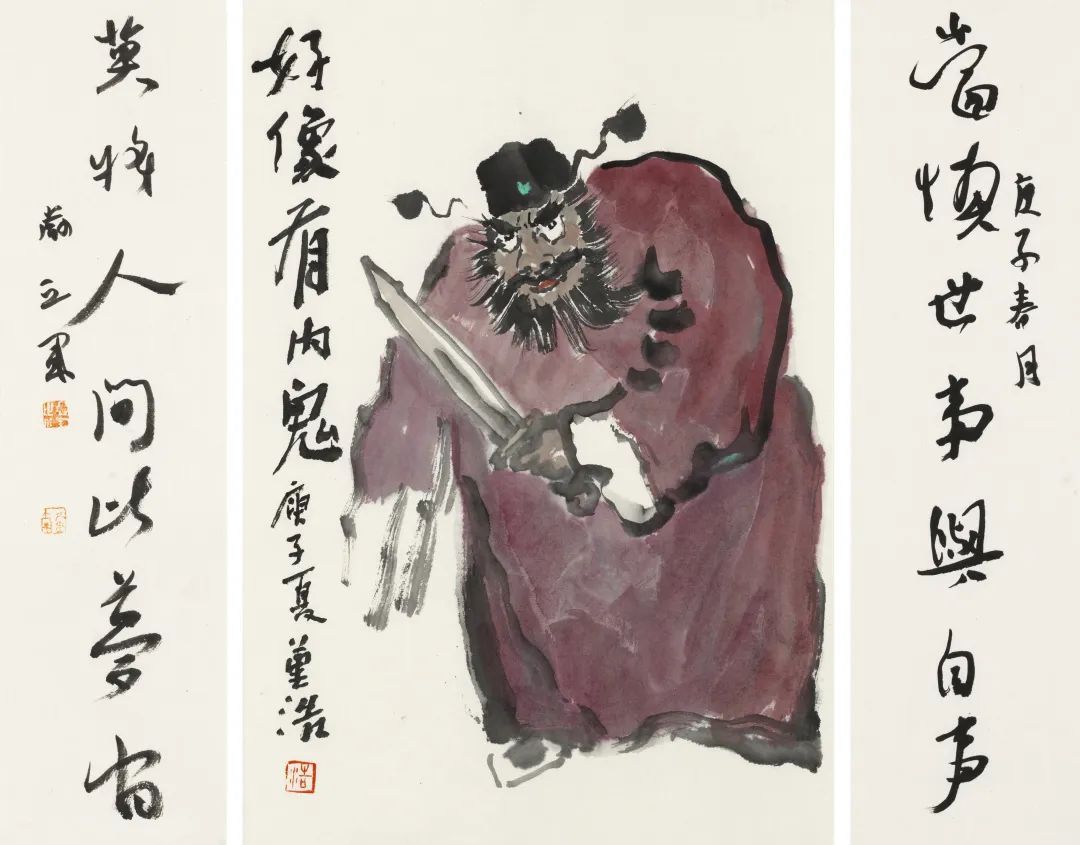 當慎世事與自事
庚子春月
好像有内鬼
庚子夏董浩
浩
莫將人間比夢
立